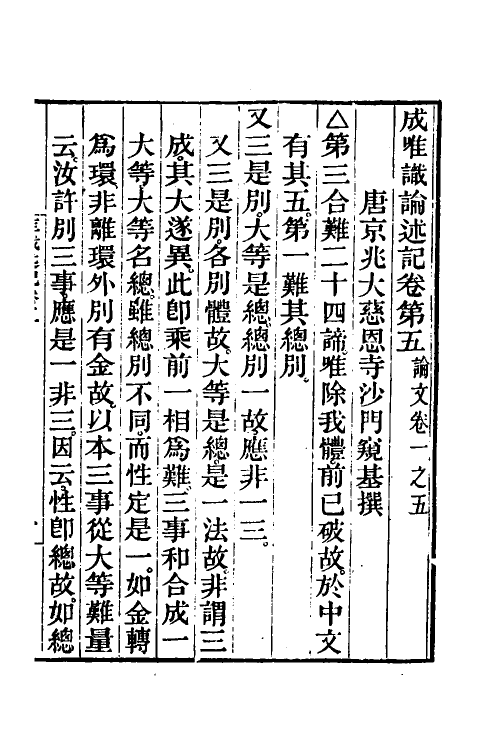 成唯識論述記卷第五 論文卷一之五
唐京兆大慈恩寺沙門窺基撰
△第三合難二十四諦。唯除我體。前已破故。於中文
有其五。第一難其總別。
又三是別。大等是總。總別一故。應非一三。
又三是別。各別體故。大等是總。是一法故。非謂三
成。其大遂異。此卽乘前一相爲難。三事和合成一
大等。大等名總。雖總別不同。而性定是一。如金轉
爲環。非離環外別有金故。以本三事從大等難量
云。汝許別三事。應是一非三。因云。性卽總故。如總